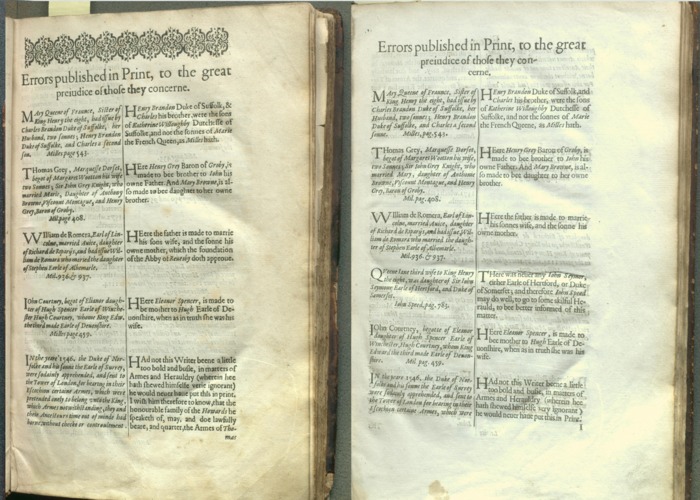 Errors published in Print, to the great
preiudice of those they concerne.
MAry Queene of Fraunce, Sister of
King Henry the eight, had issue by
Charles Brandon Duke of Suffolke, her
Husband, two sonnes; Henry Brandon
Duke of Suffolke, and Charles a second
son. Milles pag 541.
HEnry Brandon Duke of Suffolk, &
Charles his brother, were the sons
of Katherine Willoughby Dutchesse of
Suffolke, and not the sonnes of Marie
the French Queen, as Milles hath.
THomas Grey, Marquesse Dorset,
begat of Margaret Wootton his wife
two Sonnes; Sir John Grey Knight, who
married Marie, Daughter of Anthony
Browne, Viscount Montague, and Henry
Grey, Baron of Groby.
Mil. pag. 408.
HEere Henry Grey Baron of Groby, is
made to bee brother to Iohn his
owne Father. And Mary Browne, is al-
so made to bee daughter to her owne
brother.
WIlliam de Romera, Earl of Lin-
colne, married Auice, daughter
of Richard de Riparijs, and had issue Wil-
liam de Romara who married the daughter
of Stephen Earle of Albemarle.
Mil. 936. & 937.
HEere the father is made to marrie
his sons wife, and the sonne his
owne mother, which the foundation
of the Abby of Reuesby doth approue.
IOhn Courtney, begat of Elianor daugh-
ter of Hugh Spencer Earle of Winche-
ster Hugh Courtney, whome King Edw.
the third made Earle of Deuonshire.
Milles page 459.
HEere Eleanor Spencer, is made to
bee mother to Hugh Earle of De-
uonshire, when as in truth she was his
wife.
IN the yeare 1546, the Duke of Nor-
folke and his sonne the Earle of Surrey,
were sodainly apprehended, and sent to
the Tower of London, for bearing in their
Escocheon certaine Armes, which were
pretended onely to belong vnto the King,
which Armes notwithstanding, they and
their Ancestors time out of minde had
borne without checke or contraulement.
HAd not this Writer beene a little
too bold and busie, in matters of
Armes and Herauldry (wherein hee
hath shewed himselfe verie ignorant)
he would neuer haue put this in print.
I wish him therefore to know, that the
honourable family of the Howards he
speaketh of, may, and doe lawfully
beare, and quarter, the Armes of Tho-
mas
Errors published in Print, to the great
preiudice of those they con-
cerne.
MAry Queene of France, Sister of
King Henry the eight, had issue by
Charles Brandon Duke of Suffolke, her
Husband, two sonnes; Henry Brandon
Duke of Suffolke, and Charles a second
sonne. Milles, pag. 541.
HEnry Brandon Duke of Suffolk, and
Charles his brother, were the sons
of Katherine Willoughby Dutchesse of
Suffolke, and not the sonnes of Marie
the French Queene, as Milles hath.
THomas Grey, Marquesse Dorset,
begat of Margaret Wootton his wife
two Sonnes; Sir Iohn Grey Knight, who
married Mary, Daughter of Anthony
Browne, Viscount Montague, and Henry
Grey, Baron of Groby.
Mil. pag. 408.
HEere Henry Grey Baron of Groby, is
made to bee brother to Iohn his
owne Father. And Mary Browne, is al-
so made to bee daughter to her owne
brother.
WIlliam de Romera, Earl of Lin-
colne, married Auice, daughter
of Richard de Riparijs, and had issue, Wil-
liam de Romara who married the daugh-
ter of Stephen Earle of Albemarle.
Mil. 936. & 937.
HEere the father is made to marrie
his sonnes wife, and the sonne his
owne mother.
QVeene Iane third wife to King Henry
the eight, was daughter of Sir Iohn
Seymour Earle of Hertford, and Duke of
Somerset.
Iohn Speed, pag. 783.
THere was neuer any Iohn Seymor,
either Earle of Hertford, or Duke
of Somerset; and therefore Iohn Speed
may do well, to go to some skilful He-
rauld, to bee better informed of this
matter.
IOhn Courtney, begotte of Eleanor
daughter of Hugh Spencer Earle of
Winchester, Hugh Courtney, whom King
Edward the third made Earle of Deuon-
shire. Mil. pag. 459.
HEere Eleanor Spencer, is made to
bee mother to Hugh Earle of De-
uonshire, when as in truth she was his
wife.
IN the yeare 1546, the Duke of Nor-
folke and his sonne the Earle of Surrey,
were sodainly apprehended, and sent to
the Tower of London for bearing in their
Escocheon certaine Armes, which were
HAd not this Writer beene a little
too bold and busie, in matters of
Armes and Herauldry (wherein hee
hath shewed himselfe very ignorant)
he would neuer haue put this in Print.
I